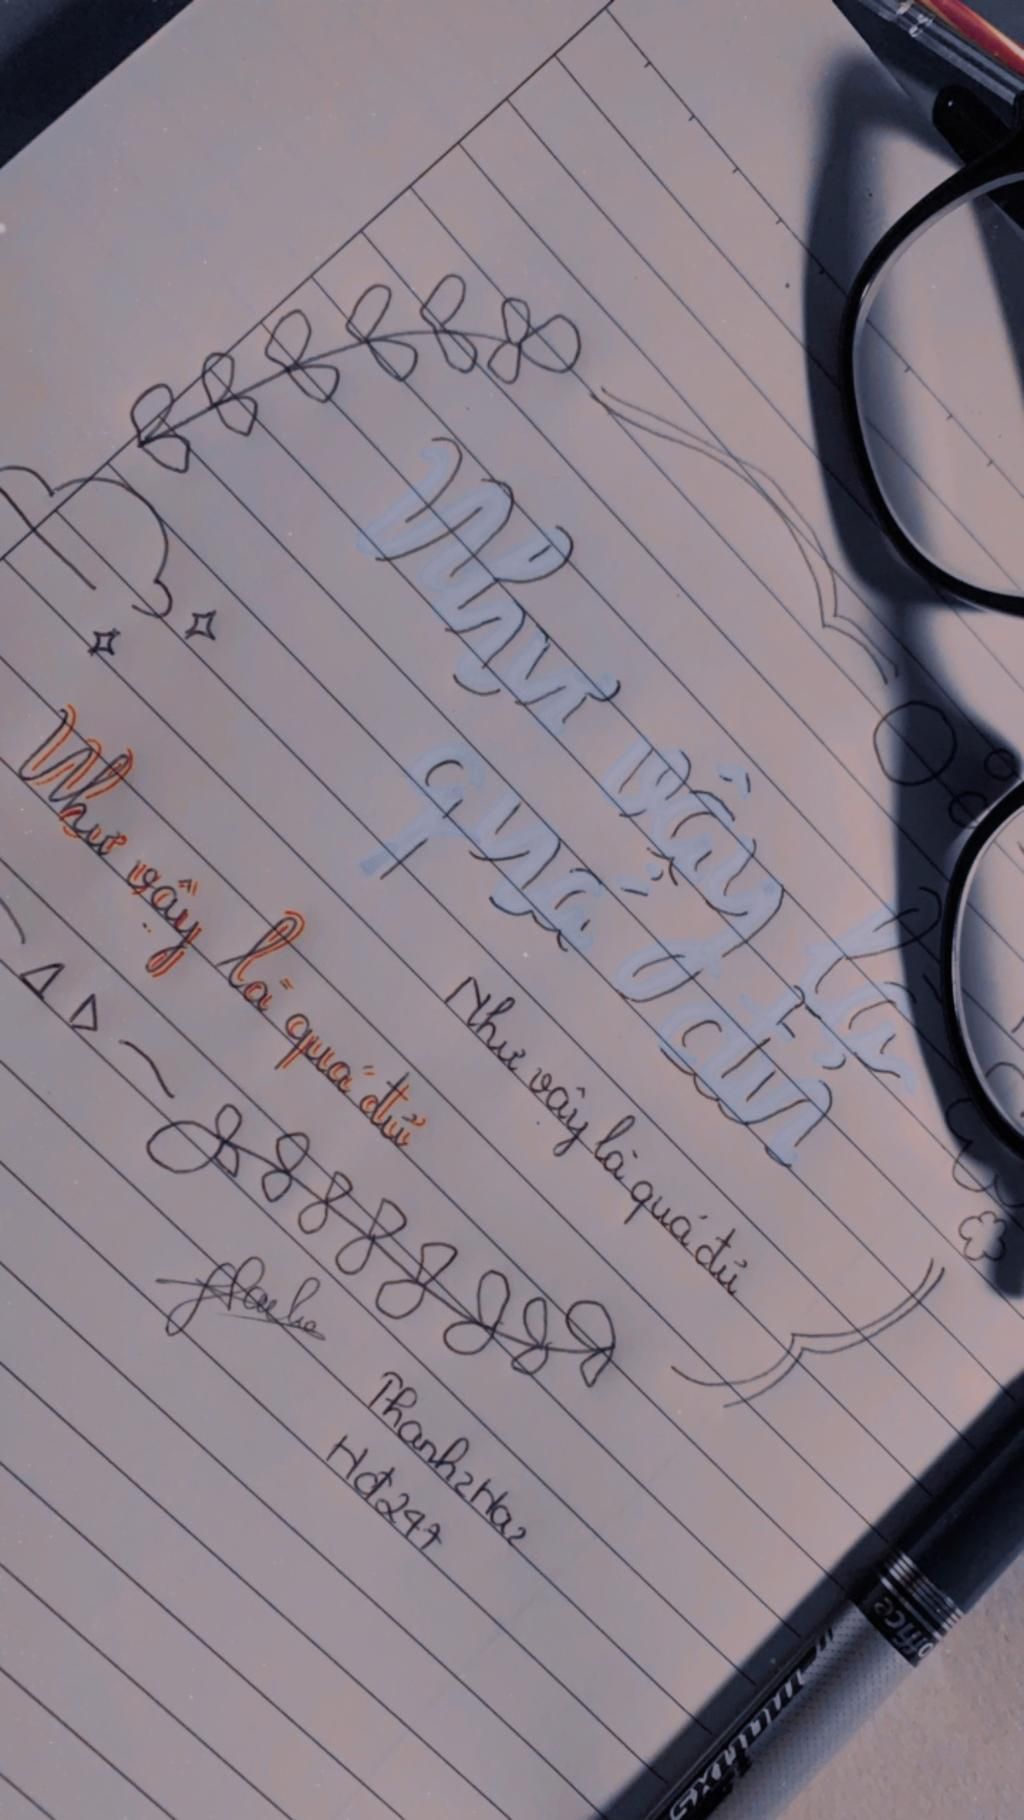 Như vậy là
quá đủ
Như vậy là quá đủ
Như vậy là quá đủ
Thanh2Ha2
office